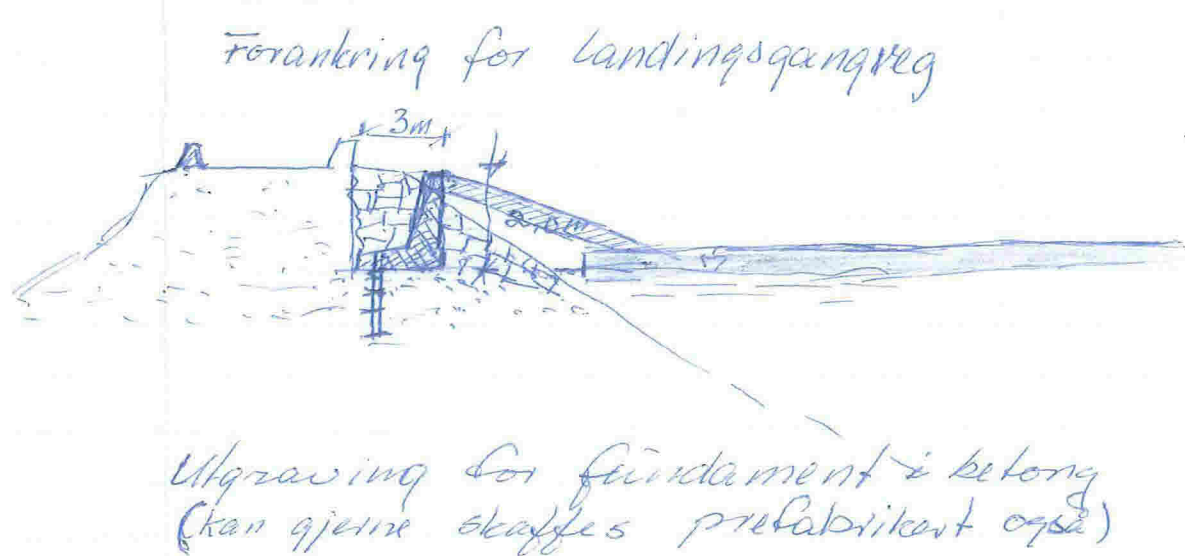 Forankring for Landingsgangveg
3m
2,0m
Utgraving for fundament i betong
(kan gjerne skaffes prefabrikert også)